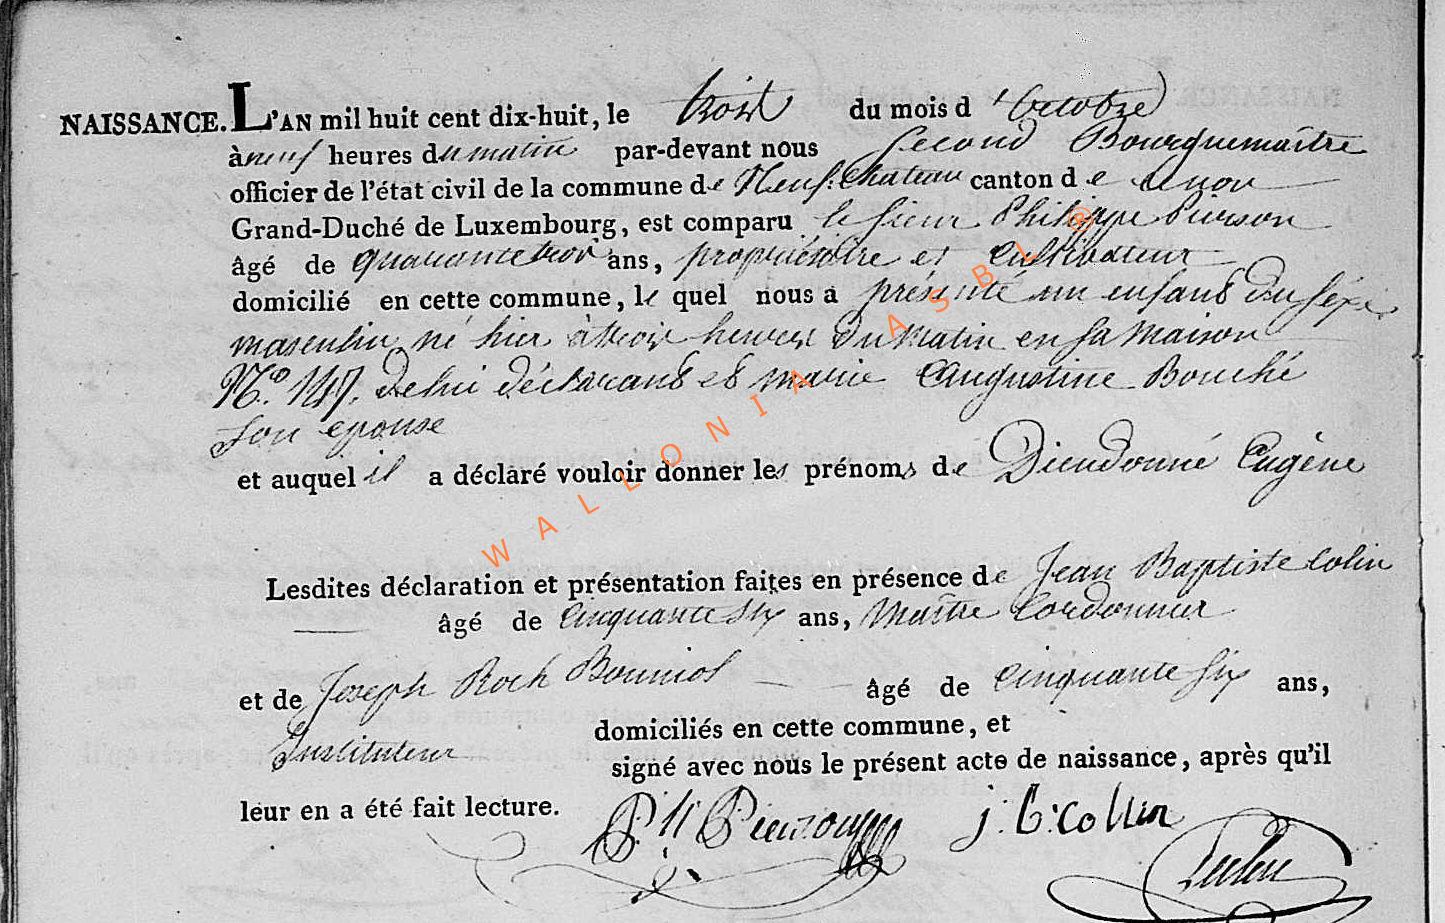 NAISSANCE. L'AN mil huit cent dix-huit, le trois du mois d'Octobre
à neuf heures du matin par-devant nous Second Bourguemaître
officier de l'état civil de la commune de Neuf-Chateau canton de
Grand-Duché de Luxembourg, est comparu le sieur Philippe Pierson
âgé de quarante trois ans, propriétaire et Cultivateur
domicilié en cette commune, le quel nous a présenté un enfant du sexe
masculin né hier à trois heures du matin en sa maison
N.o de lui déclarant et marie Augustine Bouché
son epouse
et auquel il a déclaré vouloir donner les prénoms de Dieudonné Eugène
Lesdites déclaration et présentation faites en présence de Jean Baptiste Colin
âgé de Cinquante six ans, Maître Cordonnier
et de Joseph Roch Bouniol âgé de Cinquante six ans,
Instituteur domiciliés en cette commune, et
signé avec nous le présent acte de naissance, après qu'il
leur en a été fait lecture.
Ph Pierson j: b: Collin
WALLONIA ASBL ®